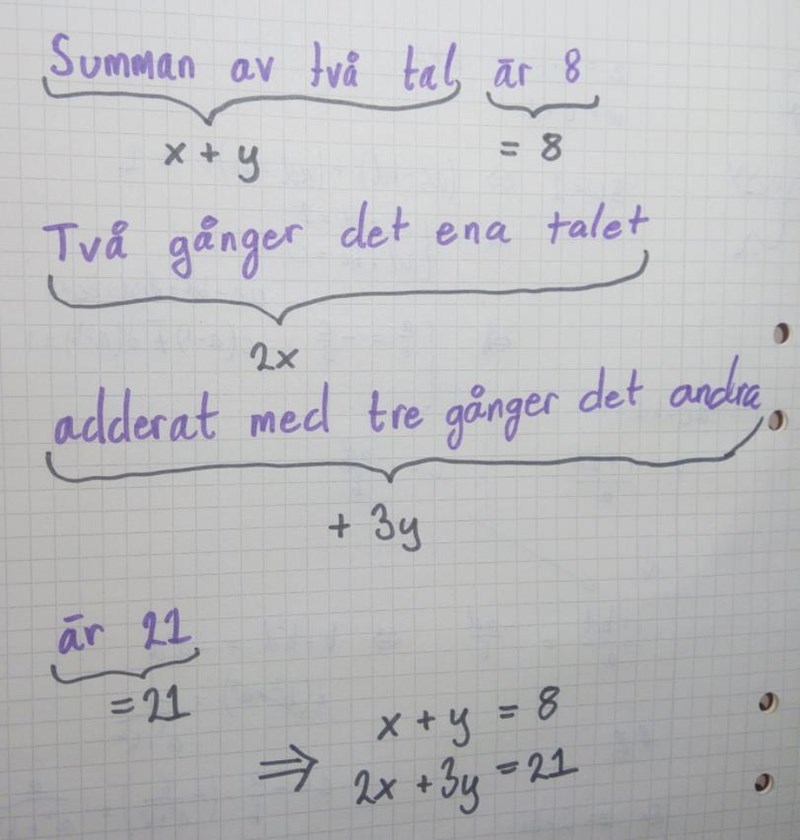 Summan av två tal är 8
x + y = 8
Två gånger det ena talet
2x
adderat med tre gånger det andra
+ 3y
är 21
= 21
x + y = 8
⇒ 2x + 3y = 21